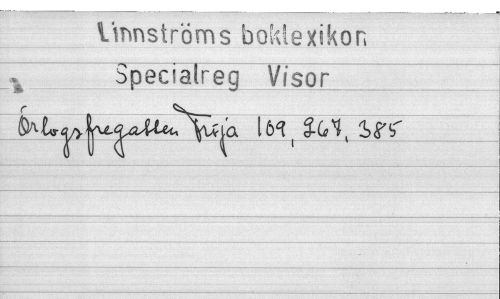 Linnströms boklexikon
Specialreg Visor
Örlogsfregatten Fröja 109, 267, 385